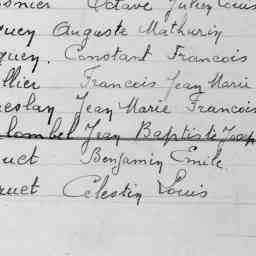 osnier Octave Julien Louis
guey Auguste Mathurin
guey. Constant Francois
llier Francois Jean Marie
Jean Marie Francois
lombel Jean Baptiste Josep
uet Benjamin Emile.
ruet Celestin Louis